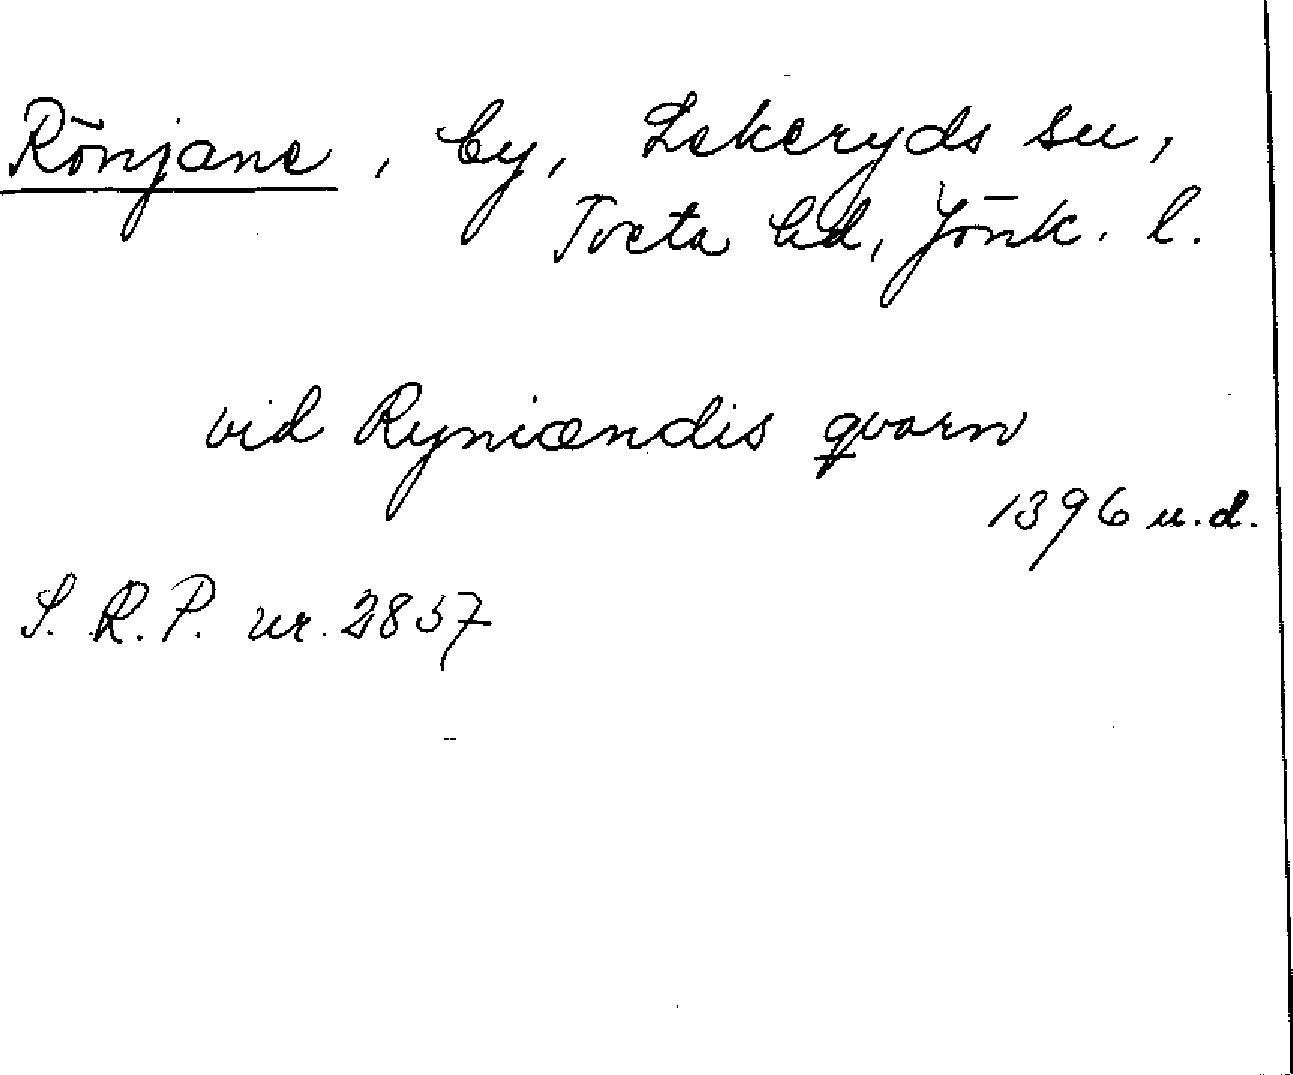 Rönjane, by, Lekeryds sn,
Tveta hd, Jönk. l.
vid Ryniændis qvarn
1396 u.d.
S. R. P. nr. 2857